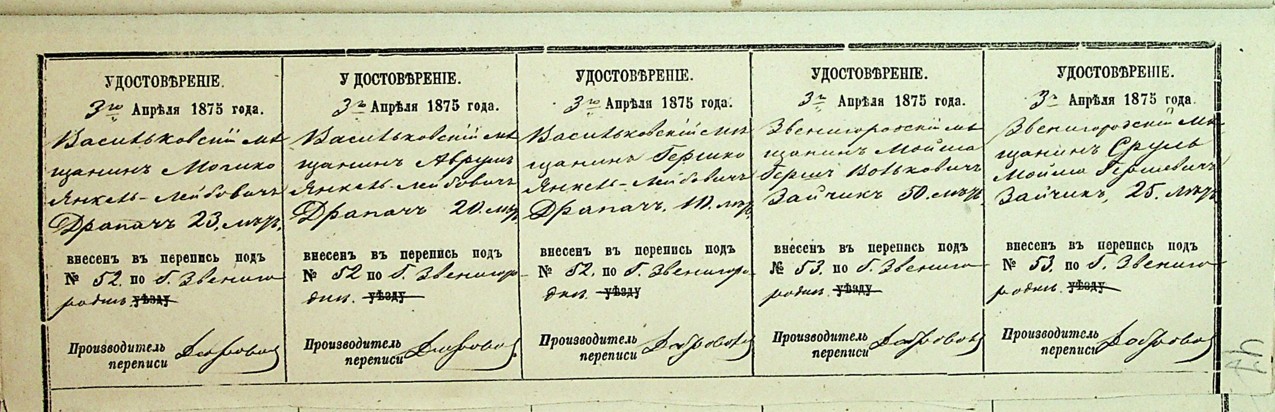 УДОСТОВѢРЕНІЕ.
3го Апрѣля 1875 года.
Васильковскій мѣ-
щанинъ Мошко
Янкель-Лейбовичъ
Драпачъ 23. лѣтъ.
внесенъ въ перепись подъ
№ 52. по г. Звениго
родкѣ. уѣзду
Производитель
переписи
УДОСТОВѢРЕНІЕ.
3го Апрѣля 1875 года.
Васильковскій мѣ-
щанинъ Аврумъ
Янкель-Лейбовичъ
Драпачъ 20. лѣтъ.
внесенъ въ перепись подъ
№ 52 по г. Звенигоро-
дкѣ. уѣзду
Производитель
переписи
УДОСТОВѢРЕНІЕ.
3го Апрѣля 1875 года.
Васильковскій мѣ-
щанинъ Гершко
Янкель-Лейбовичъ
Драпачъ, 10. лѣтъ.
внесенъ въ перепись подъ
№ 52. по г. Звенигоро-
дкѣ. уѣзду
Производитель
переписи
УДОСТОВѢРЕНІЕ.
3го Апрѣля 1875 года.
Звенигородскій мѣ-
щанинъ Мойша
Герш Вольковичъ
Зайчикъ 50. лѣтъ.
внесенъ въ перепись подъ
№ 53. по г. Звениго-
родкѣ. уѣзду
Производитель
переписи
УДОСТОВѢРЕНІЕ.
3го Апрѣля 1875 года.
Звенигородскій мѣ-
щанинъ Сруль
Мойша Гершевичъ
Зайчикъ, 25. лѣтъ.
внесенъ въ перепись подъ
№ 53. по г. Звениго
родкѣ. уѣзду
Производитель
переписи